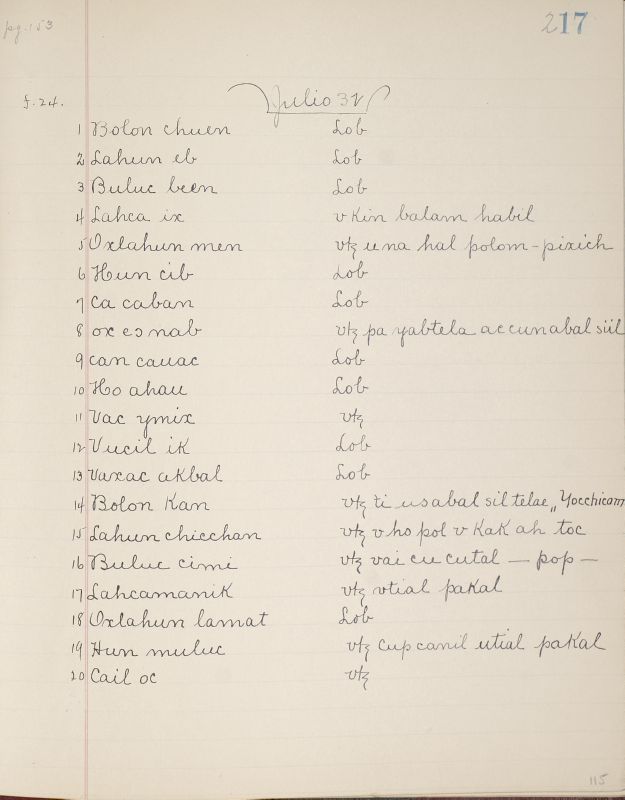 pg. 153
217
f. 24.
Julio 31
1 Bolon chuen Lob
2 Lahun eb Lob
3 Buluc been Lob
4 Lahca ix v Kin balam habil
5 Oxlahun men vtz u na hal polom - pixich
6 Hun cib Lob
7 Ca caban Lob
8 ox es nab vtz pa yabtela accunabal siil
9 can cauac Lob
10 Ho ahau Lob
11 Vac ymix vtz
12 Vucil ik Lob
13 Vaxac akbal Lob
14 Bolon Kan vtz ti usabal sil telae „Yocchicam
15 Lahun chicchan vtz v ho pol v Kak ah toc
16 Buluc cimi vtz vai cu cutal — pop —
17 Lahcamanik vtz vtial pakal
18 Oxlahun lamat Lob
19 Hun muluc vtz Cup canil utial paKal
20 Cail oc vtz
115